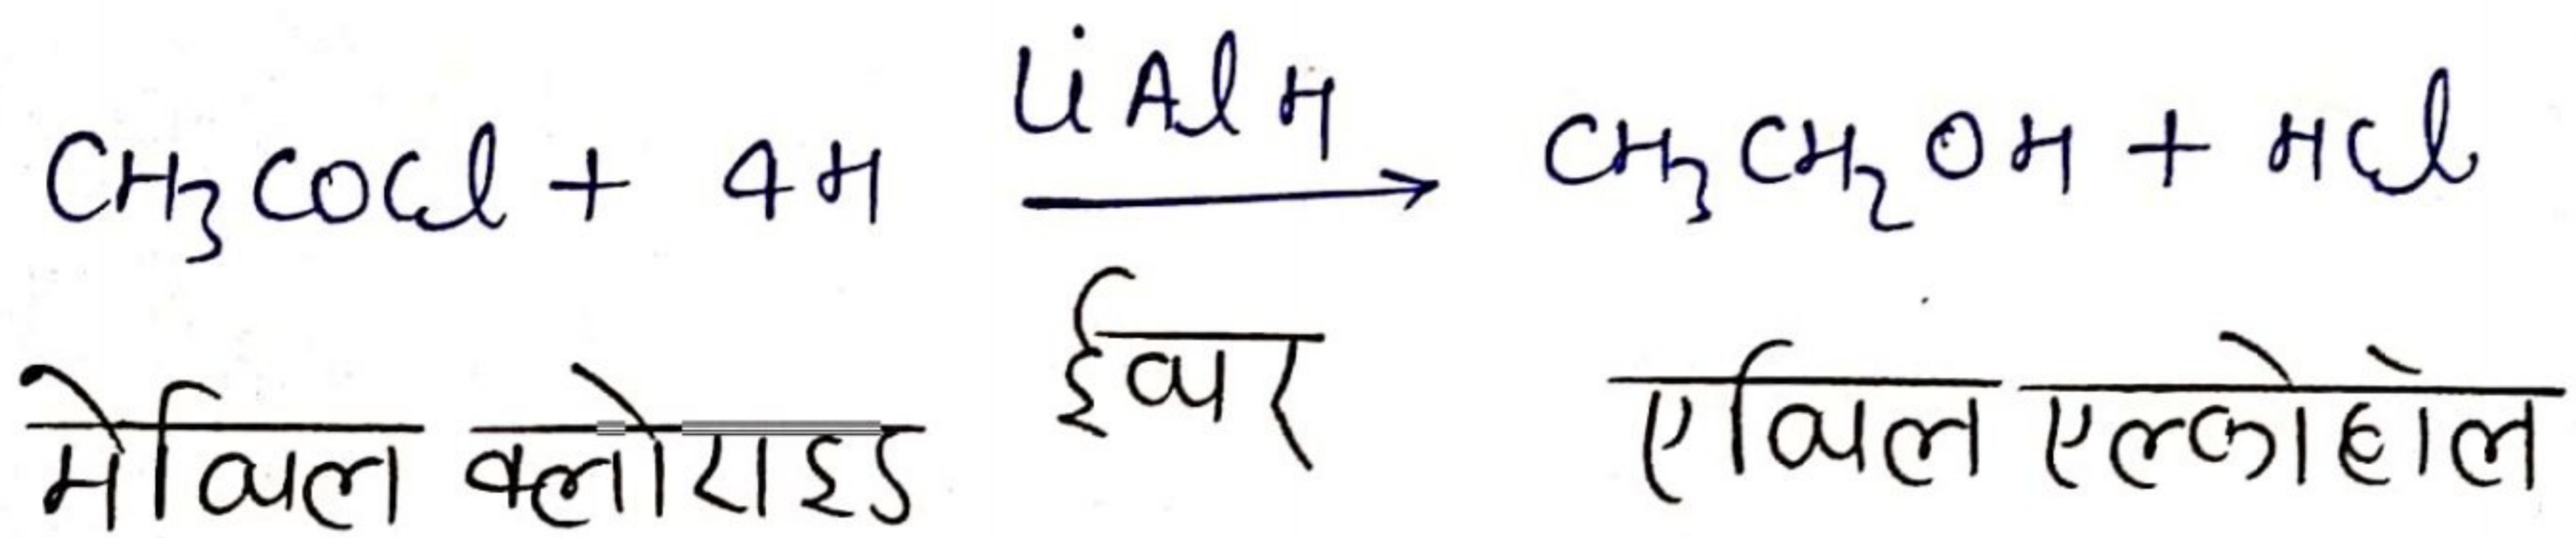 CH₃COCl + 4H LiAlH → CH₃CH₂OH + HCl
मेथिल क्लोराइड ईथर एथिल एल्कोहॉल